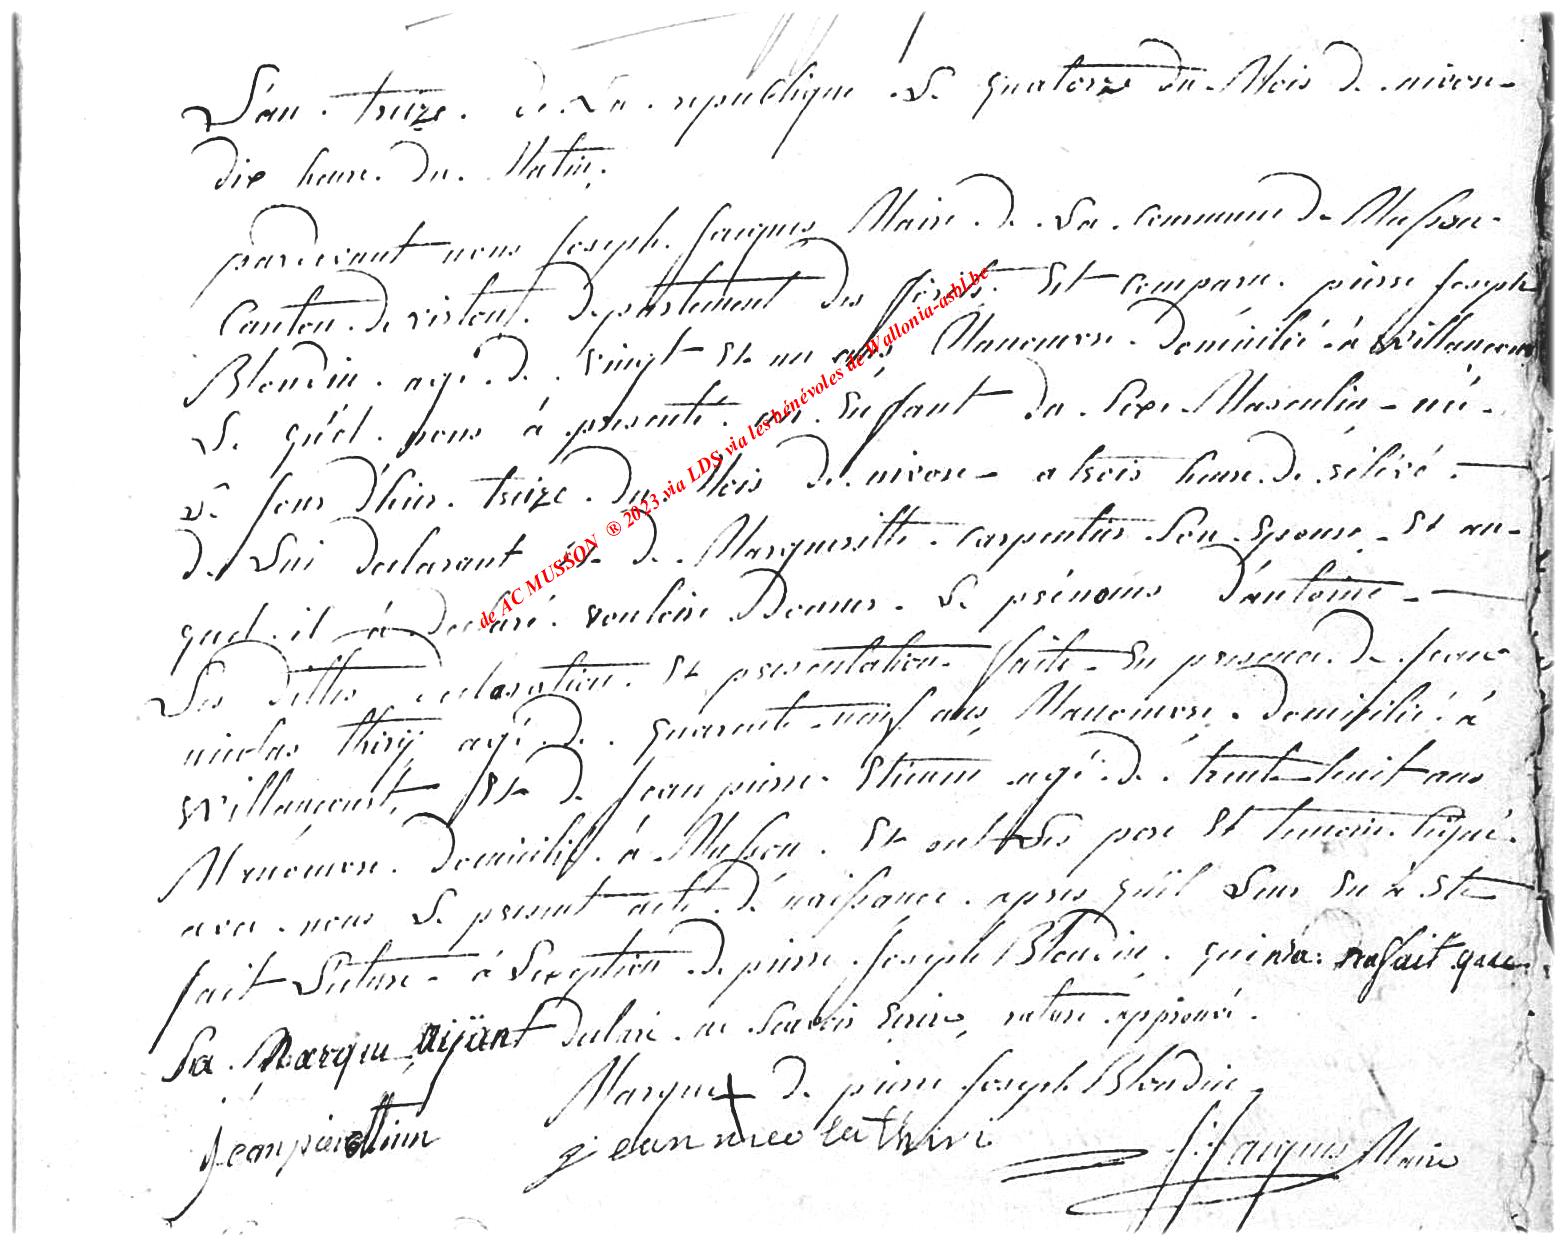 L'an treize de La republique Le quatorze du Mois de nivose
dix heure du Matin.
pardevant nous Joseph Jacques Maire de La commune de Musson
Canton de virton departement des forêts Est comparu pierre Joseph
Blondin agé de vingt et un ans Manœuvre domicilié à Willancourt
Le quel nous à presenté un Enfant du Sexe Masculin né
Le Jour d'hier treize du Mois de nivose a trois heure de rélévé
de Lui declarant et de Margueritte carpentier Son Epouse Et au
quel il à declaré vouloire Donner Le prénoms d'antoine
Les dittes declaration Et presentation faite En presence de Jean
nicolas thirÿ agé de quarente neuf ans Manœuvre domicilié à
Willancourt Et de Jean pierre Etienne agé de trente huit ans
Manœuvre domicilié à Musson Et ont Les pere Et temoin signé
avec nous Le present acte de naissance apres qu'il Leur En à Eté
fait Lecture à L'exeption de pierre Joseph Blondin qui n'a fait que
Sa Marque aÿant declaré ne Savoir Ecrire, rature approuvé.
Marque + de pierre Joseph Blondin
jean pier etienn jean nico la thiri J: Jacques Maire
de AC MUSSON ® 2023 via LDS via les bénévoles de Wallonia-asbl.be